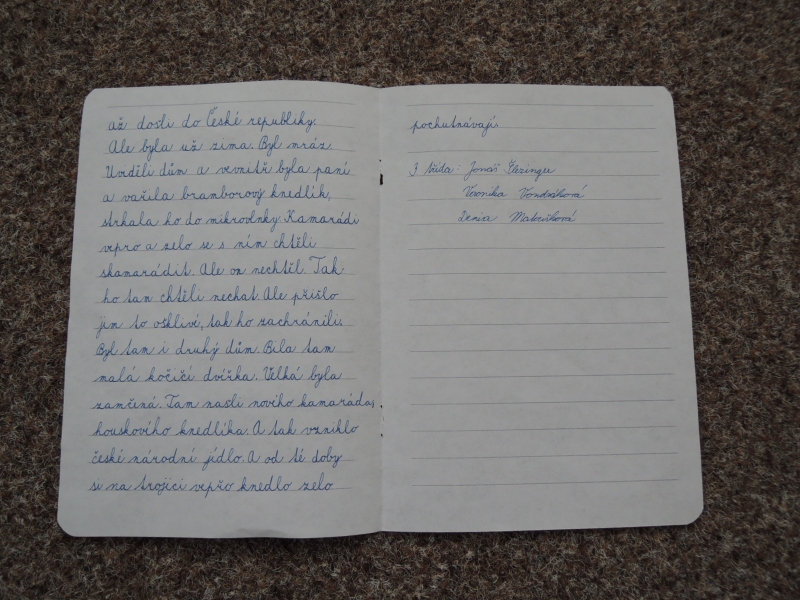 až došli do České republiky.
Ale byla už zima. Byl mráz.
Uviděli dům a vevnitř byla paní
a vařila bramborový knedlík,
strkala ho do mikrovlnky. Kamarádi
vepro a zelo se s ním chtěli
skamarádit. Ale on nechtěl. Tak
ho tam chtěli nechat. Ale přišlo
jim to ošklivé, tak ho zachránili.
Byl tam i druhý dům. Bila tam
malá kočičí dvířka. Velká byla
zamčená. Tam našli nového kamaráda,
houskového knedlíka. A tak vzniklo
české národní jídlo. A od té doby
si na trojici vepřo knedlo zelo
pochutnávají.
3 třída: Jonáš
Veronika Vondráková